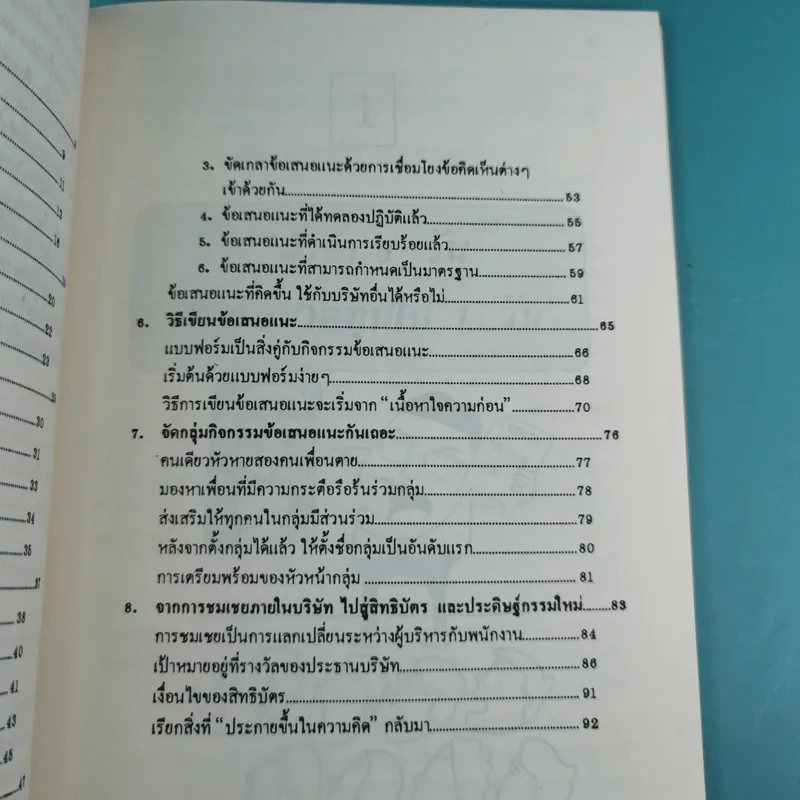 9
11
13
16
20
22
23
30
31
33
34
35
37
38
40
41
43
45
47
3. ขัดเกลาข้อเสนอแนะด้วยการเชื่อมโยงข้อคิดเห็นต่างๆ
เข้าด้วยกัน..........53
4. ข้อเสนอแนะที่ได้ทดลองปฏิบัติแล้ว..........55
5. ข้อเสนอแนะที่ดำเนินการเรียบร้อยแล้ว..........57
6. ข้อเสนอแนะที่สามารถกำหนดเป็นมาตรฐาน..........59
ข้อเสนอแนะที่คิดขึ้น ใช้กับบริษัทอื่นได้หรือไม่..........61
6. วิธีเขียนข้อเสนอแนะ..........65
แบบฟอร์มเป็นสิ่งคู่กับกิจกรรมข้อเสนอแนะ..........66
เริ่มต้นด้วยแบบฟอร์มง่ายๆ..........68
วิธีการเขียนข้อเสนอแนะจะเริ่มจาก “เนื้อหาใจความก่อน”..........70
7. จัดกลุ่มกิจกรรมข้อเสนอแนะกันเถอะ..........76
คนเดียวหัวหายสองคนเพื่อนตาย..........77
มองหาเพื่อนที่มีความกระตือรือร้นร่วมกลุ่ม..........78
ส่งเสริมให้ทุกคนในกลุ่มมีส่วนร่วม..........79
หลังจากตั้งกลุ่มได้แล้ว ให้ตั้งชื่อกลุ่มเป็นอันดับแรก..........80
การเตรียมพร้อมของหัวหน้ากลุ่ม..........81
8. จากการชมเชยภายในบริษัท ไปสู่สิทธิบัตร และประดิษฐ์กรรมใหม่..........83
การชมเชยเป็นการแลกเปลี่ยนระหว่างผู้บริหารกับพนักงาน..........84
เป้าหมายอยู่ที่รางวัลของประธานบริษัท..........86
เงื่อนไขของสิทธิบัตร..........91
เรียกสิ่งที่ “ประกายขึ้นในความคิด” กลับมา..........92